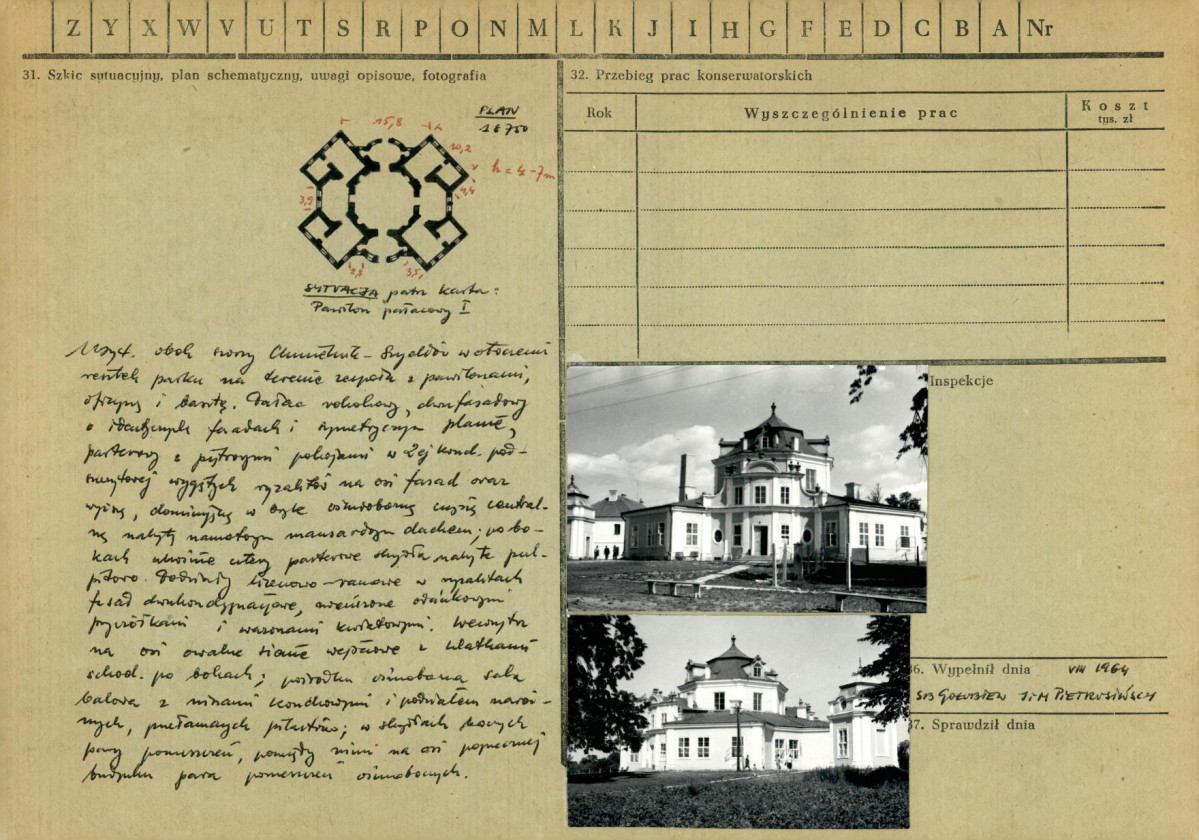 Z Y X W V U T S R P O N M L K J I H G F E D C B A Nr
31. Szkic sytuacyjny, plan schematyczny, uwagi opisowe, fotografia
PLAN
1:750
15,8
10,2
h = 4-7m
4,4
3,9
2,8
3,5
SYTUACJA patrz karta:
Pawilon pałacowy I
Usyt. obok szosy Chmielnik - Szydłów w otoczeniu
resztek parku na terenie zespołu z pawilonami,
oficyną i basztą. Pałac rokokowy, dwufasadowy
o identycznych fasadach i symetrycznym planie,
parterowy z piętrowymi pokojami w 2ej kond. pod-
wygiętych ryzalitów na osi fasad oraz
wyższą, dominującą w bryle ośmioboczną częścią central-
ną nakrytą namiotowym mansardowym dachem; po bo-
kach ukośnie cztery parterowe skrzydła nakryte pul-
pitowo. Podziały lizenowo-ramowe w ryzalitach
fasad dwukondygnacjowe, zwieńczone odcinkowymi
przyczółkami i wazonami kwiatowymi. Wewnątrz
na osi owalne sienie wejściowe z klatkami
schod. po bokach; pośrodku ośmioboczna sala
balowa z niszami i podziałem naroż-
nych, przełamanych pilastrów; w skrzydłach
pary pomieszczeń, pomiędzy nimi na osi poprzecznej
budynku para pomieszczeń ośmiobocznych.
32. Przebieg prac konserwatorskich
Rok Wyszczególnienie prac Koszt
tys. zł
Inspekcje
36. Wypełnił dnia VIII 1964
37. Sprawdził dnia